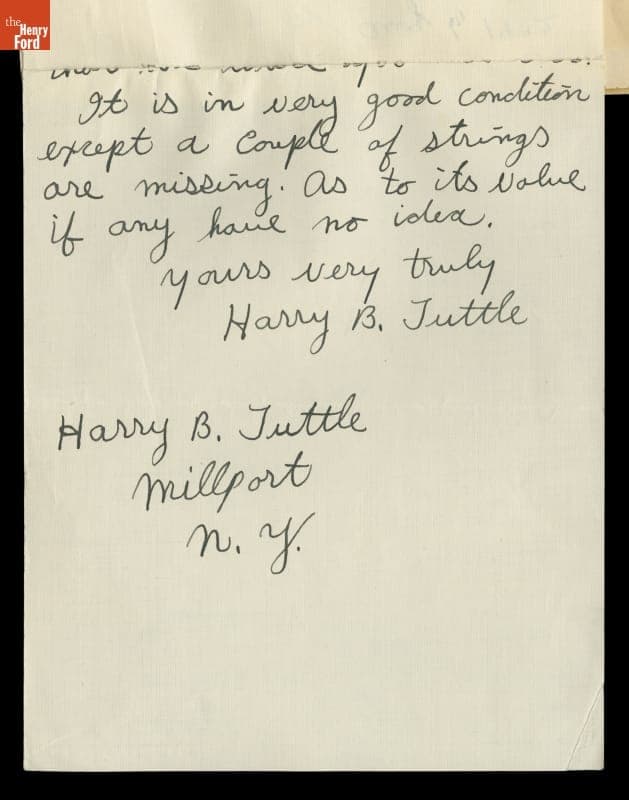 the Henry Ford
It is in very good condition
except a couple of strings
are missing. As to its value
if any have no idea.
Yours very truly
Harry B. Tuttle
Harry B. Tuttle
Millport
N. Y.